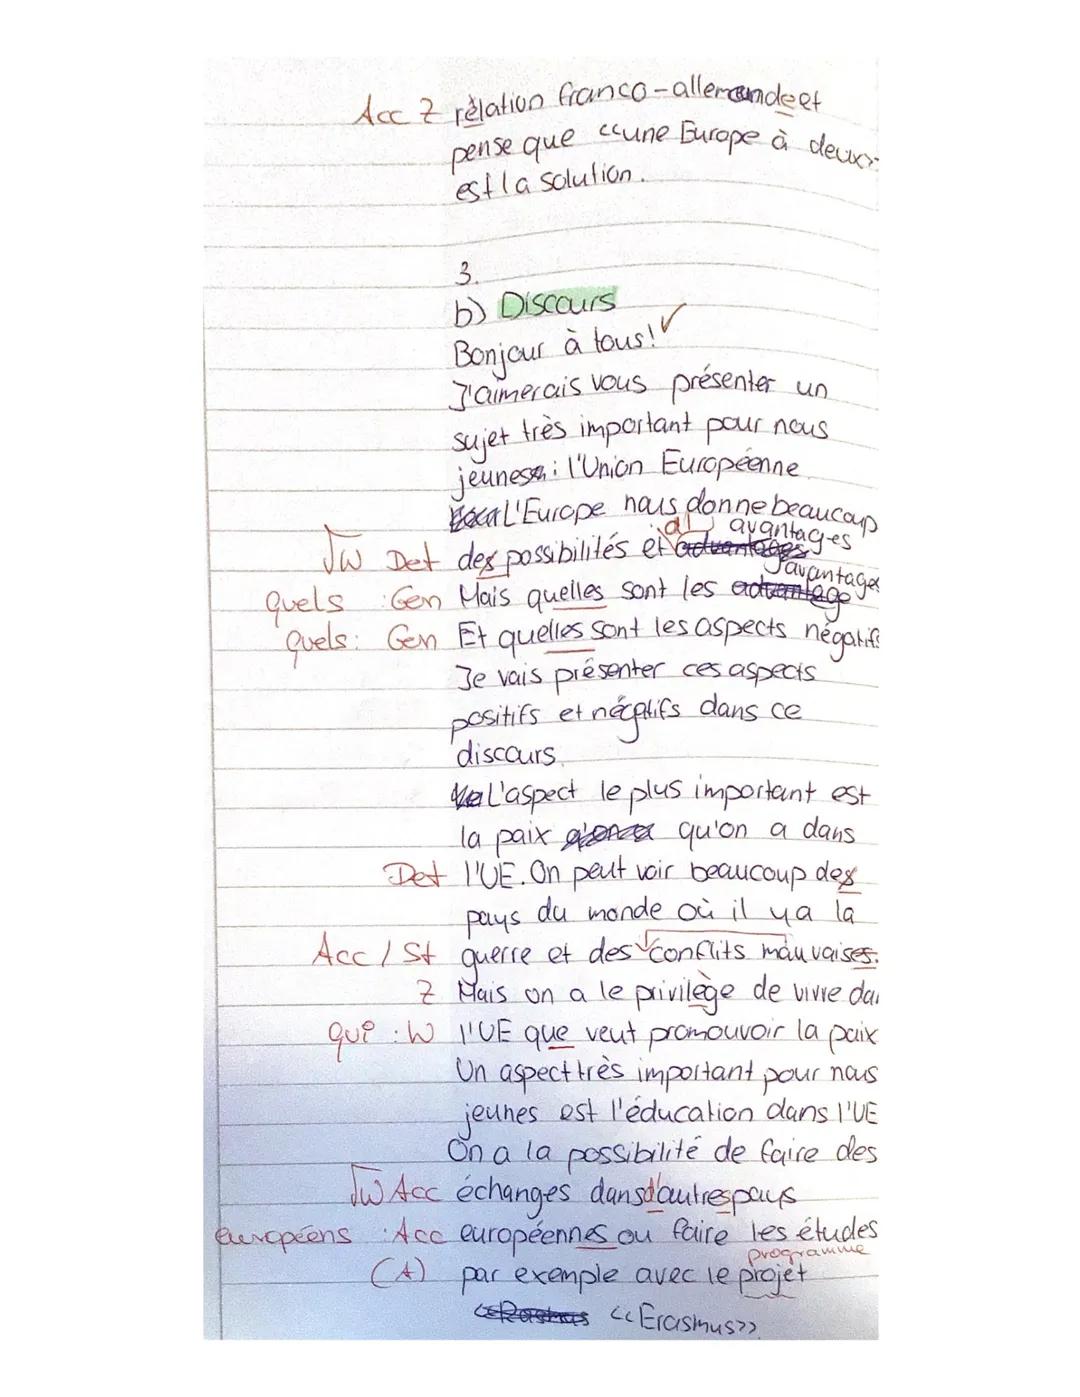 Acc Z rèlation franco-allemande et
pense que <<une Europe à deux>>
est la solution.
3.
b) Discours
Bonjour à tous! ✓
J'aimerais vous présenter un
sujet très important pour nous
jeunes : l'Union Européenne.
L'Europe nous donne beaucoup
√W Det des possibilités et d' avantages
quels : Gen Mais quelles sont les avantages
quels : Gen Et quelles sont les aspects négatifs
Je vais présenter ces aspects
positifs et négatifs dans ce
discours.
L'aspect le plus important est
la paix qu'on a dans
Det l'UE. On peut voir beaucoup des
pays du monde où il y a la
Acc / St guerre et des conflits mauvaises.
Z Mais on a le privilège de vivre da
qui : W l'UE que veut promouvoir la paix
Un aspect très important pour nous
jeunes est l'éducation dans l'UE
On a la possibilité de faire des
√W Acc échanges dans d'autres pays
européens : Acc européennes ou faire les études
programme
(A) par exemple avec le projet
<<Erasmus>>